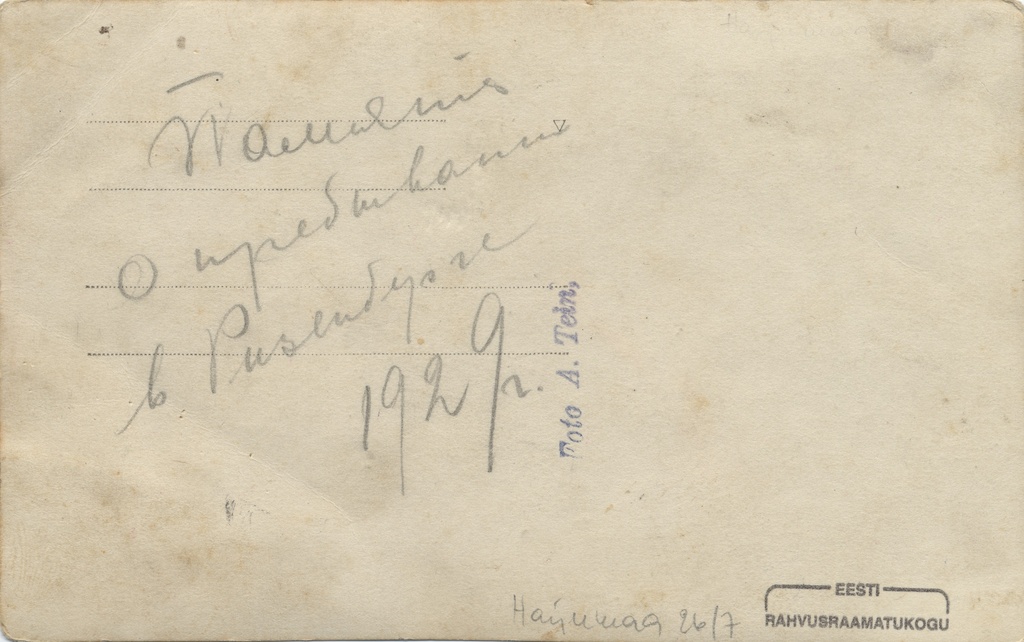 Память
о пребывании
в Ризенбурге
1929 г.
Foto A. Tein,
Harjumaa 26/7
EESTI
RAHVUSRAAMATUKOGU